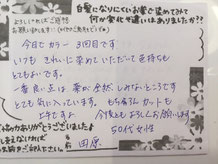 よろしければご感想
お願いします
白髪になりにくいお薬で染めてみて
何か変化や違いはありましたか??
今日でカラー 3回目です
いつも きれいに染めていただいて気持ちも
とてもよいです。
一番良い点は 薬が全然しみないところです
とても気に入っています。もちろん カットも
上手ですよ 今後ともよろしくお願いします
ありがとうございました
50代女性
田原